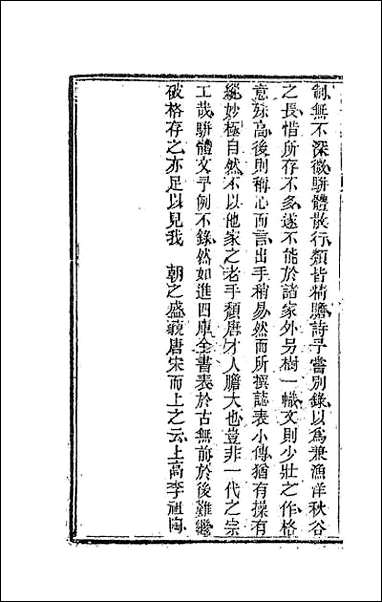 制無不深微駢體散行類皆精膽詩予嘗別錄以爲兼漁洋秋谷
之長惜所存不多遂不能於諸家外另樹一幟文則少壯之作格
意殊高後則稱心而言出手稍易然而所撰誌表小傳猶有操有
縱妙極自然不以他家之老手頹唐才人膽大也豈非一代之宗
工哉駢體文予例不錄然如進四庫全書表於古無前於後難繼
破格存之亦足以見我　朝之盛襄唐宋而上之云上高李祖陶